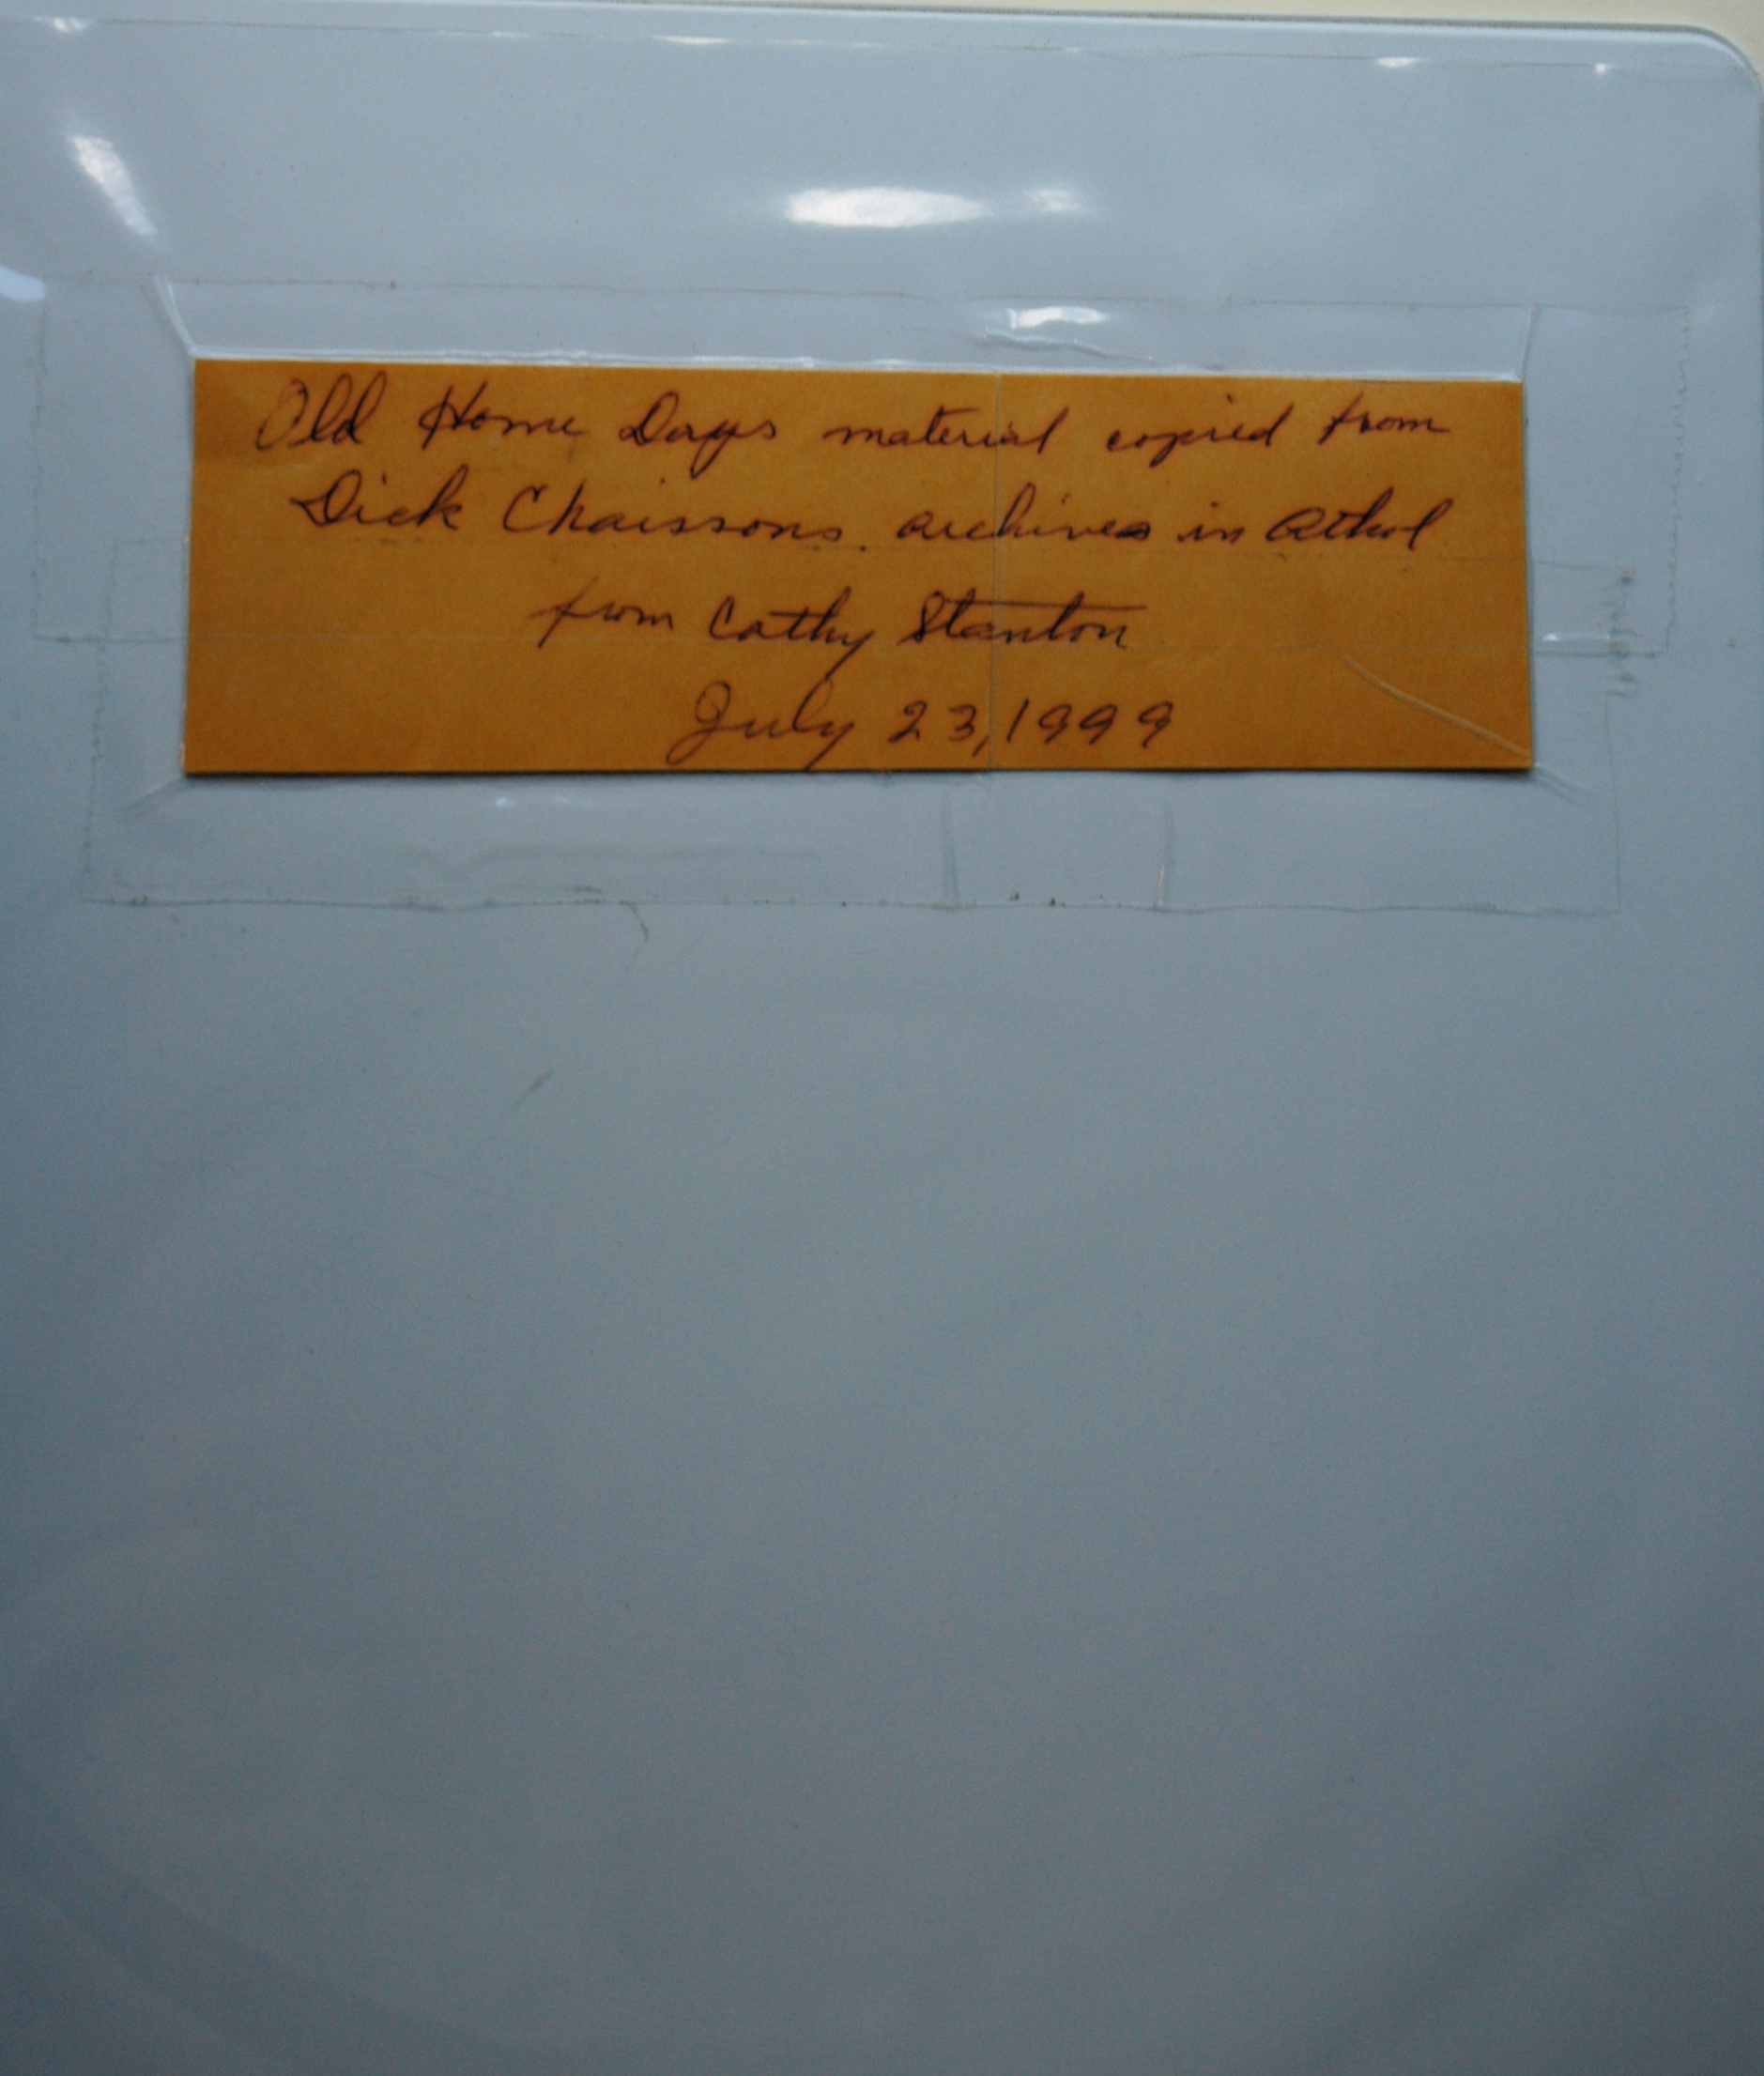 Old Home Days material copied from
Dick Chaissons. archives in Athol
from Cathy Stanton
July 23, 1999